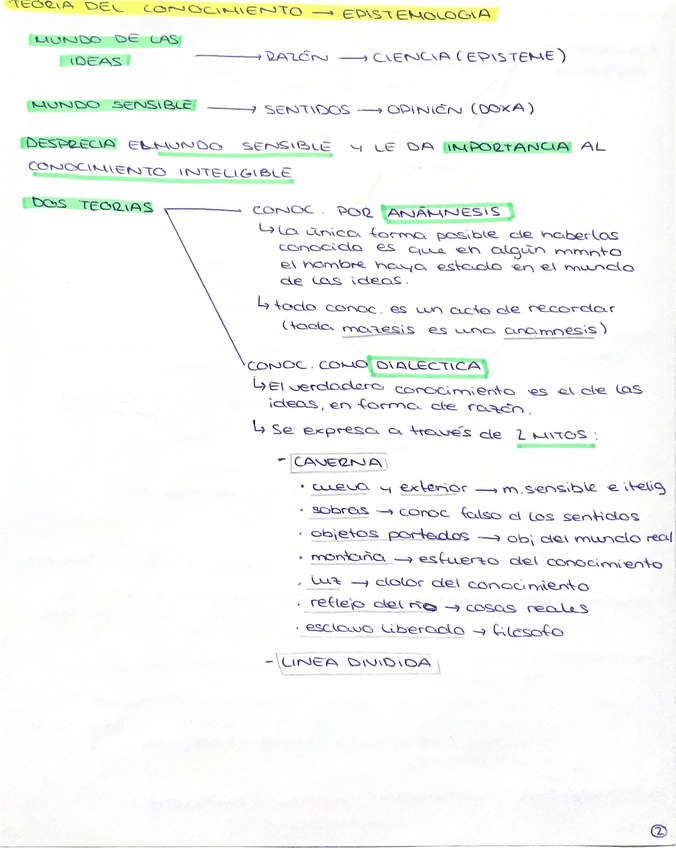 TEORIA DEL CONOCIMIENTO → EPISTEMOLOGIA
MUNDO DE LAS
IDEAS → RAZÓN → CIENCIA (EPISTEME)
MUNDO SENSIBLE → SENTIDOS → OPINIÓN (DOXA)
DESPRECIA EL MUNDO SENSIBLE Y LE DA IMPORTANCIA AL
CONOCIMIENTO INTELIGIBLE
DOS TEORIAS
CONOC. POR ANÁMNESIS
↳ La única forma posible de haberlas
conocido es que en algún mmnto
el hombre haya estado en el mundo
de las ideas.
↳ todo conoc. es un acto de recordar
(toda mazesis es una anamnesis)
CONOC. COMO DIALECTICA
↳ El verdadero conocimiento es el de las
ideas, en forma de razón.
↳ Se expresa a través de 2 MITOS:
- CAVERNA
· cueva y exterior → m.sensible e itelig
· sobras → conoc falso d los sentidos
· objetos portados → obj del mundo real
· montaña → esfuerzo del conocimiento
· luz → dolor del conocimiento
· reflejo del río → cosas reales
· esclavo liberado → filósofo
- LINEA DIVIDIDA
2